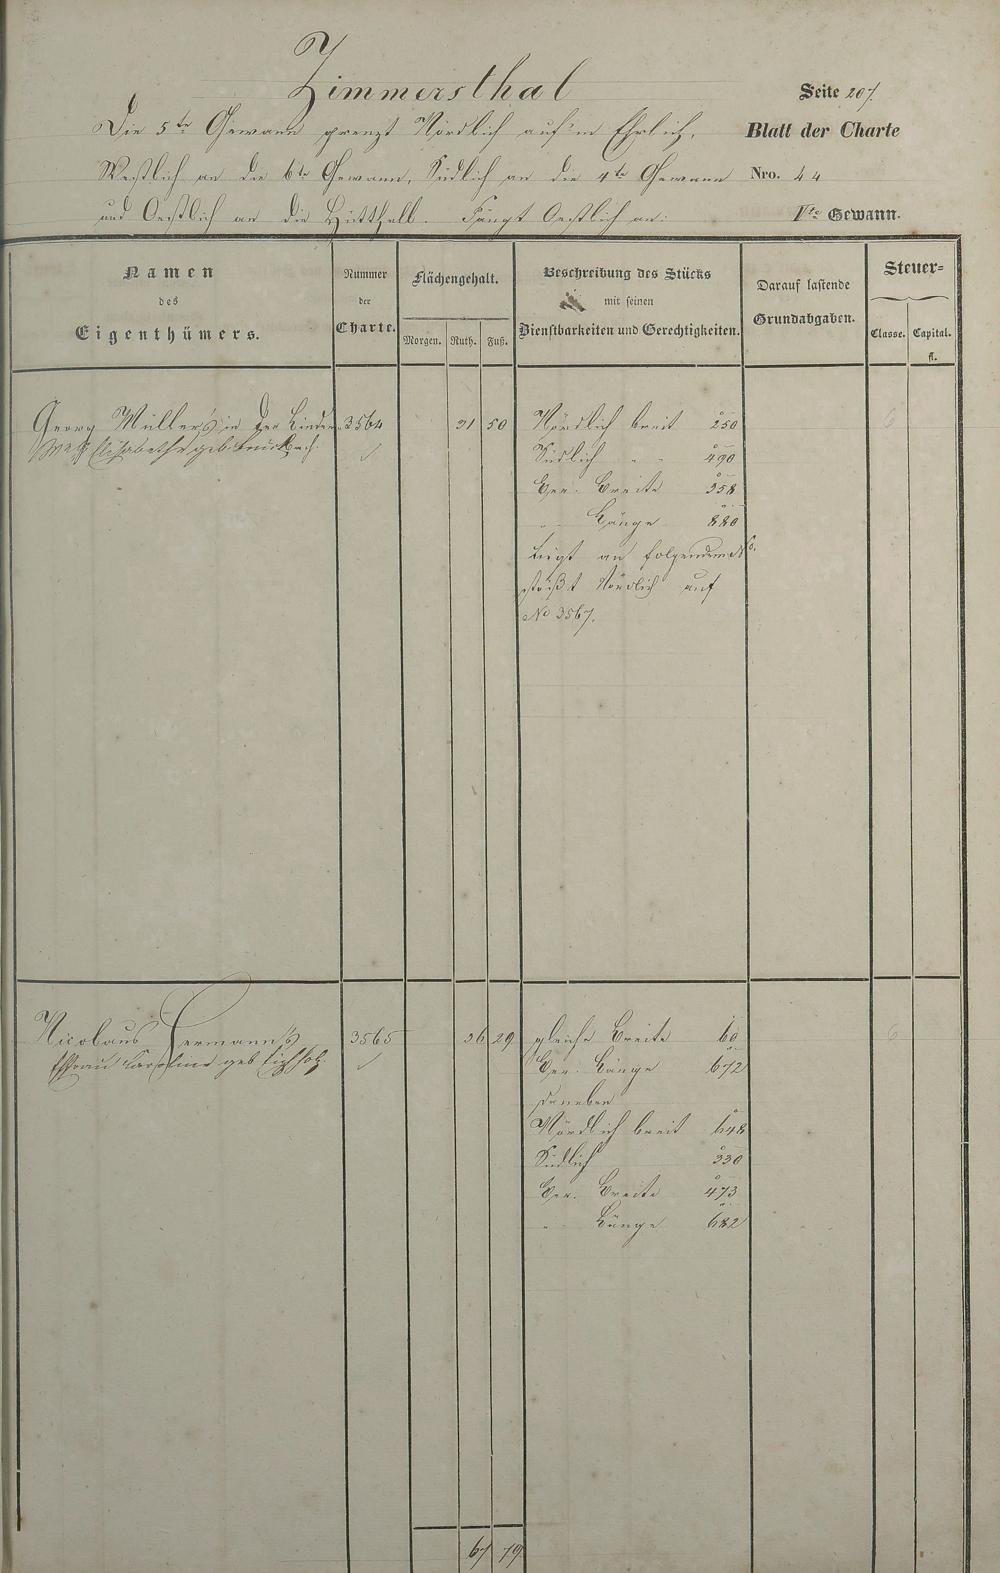 Zimmersthal
Seite 207.
Die 5te Gewann grenzt Nördlich auf'm Ehrlich,
Blatt der Charte
Westlich an die 6te Gewann, Südlich an die 4te Gewann
Nro. 44
und Oestlich an die Fängt Oestlich an:
Vte Gewann.
Namen
des
Eigenthümers.
Nummer
der
Charte.
Flächengehalt.
Morgen. Ruth. Fuß.
Beschreibung des Stücks
mit seinen
Dienstbarkeiten und Gerechtigkeiten.
Darauf lastende
Grundabgaben.
Steuer=
Classe. Capital.
fl.
Georg Müller's in der Linden 3564 31 50 Nördlich breit 250
Elisabetha geb.
Südlich " " 490
Ger. Breite 358
" Länge 880
Liegt an folgendem No.
stößt Nördlich auf
No 3567.
6
Nicolaus Hermann's 3565 36 29 gleiche Breite 60
Ehfrau Caroline geb
Ger. Länge 672
daneben
Nördlich breit 648
Südlich 330
Ger. Breite 473
" Länge 682
6
67 79